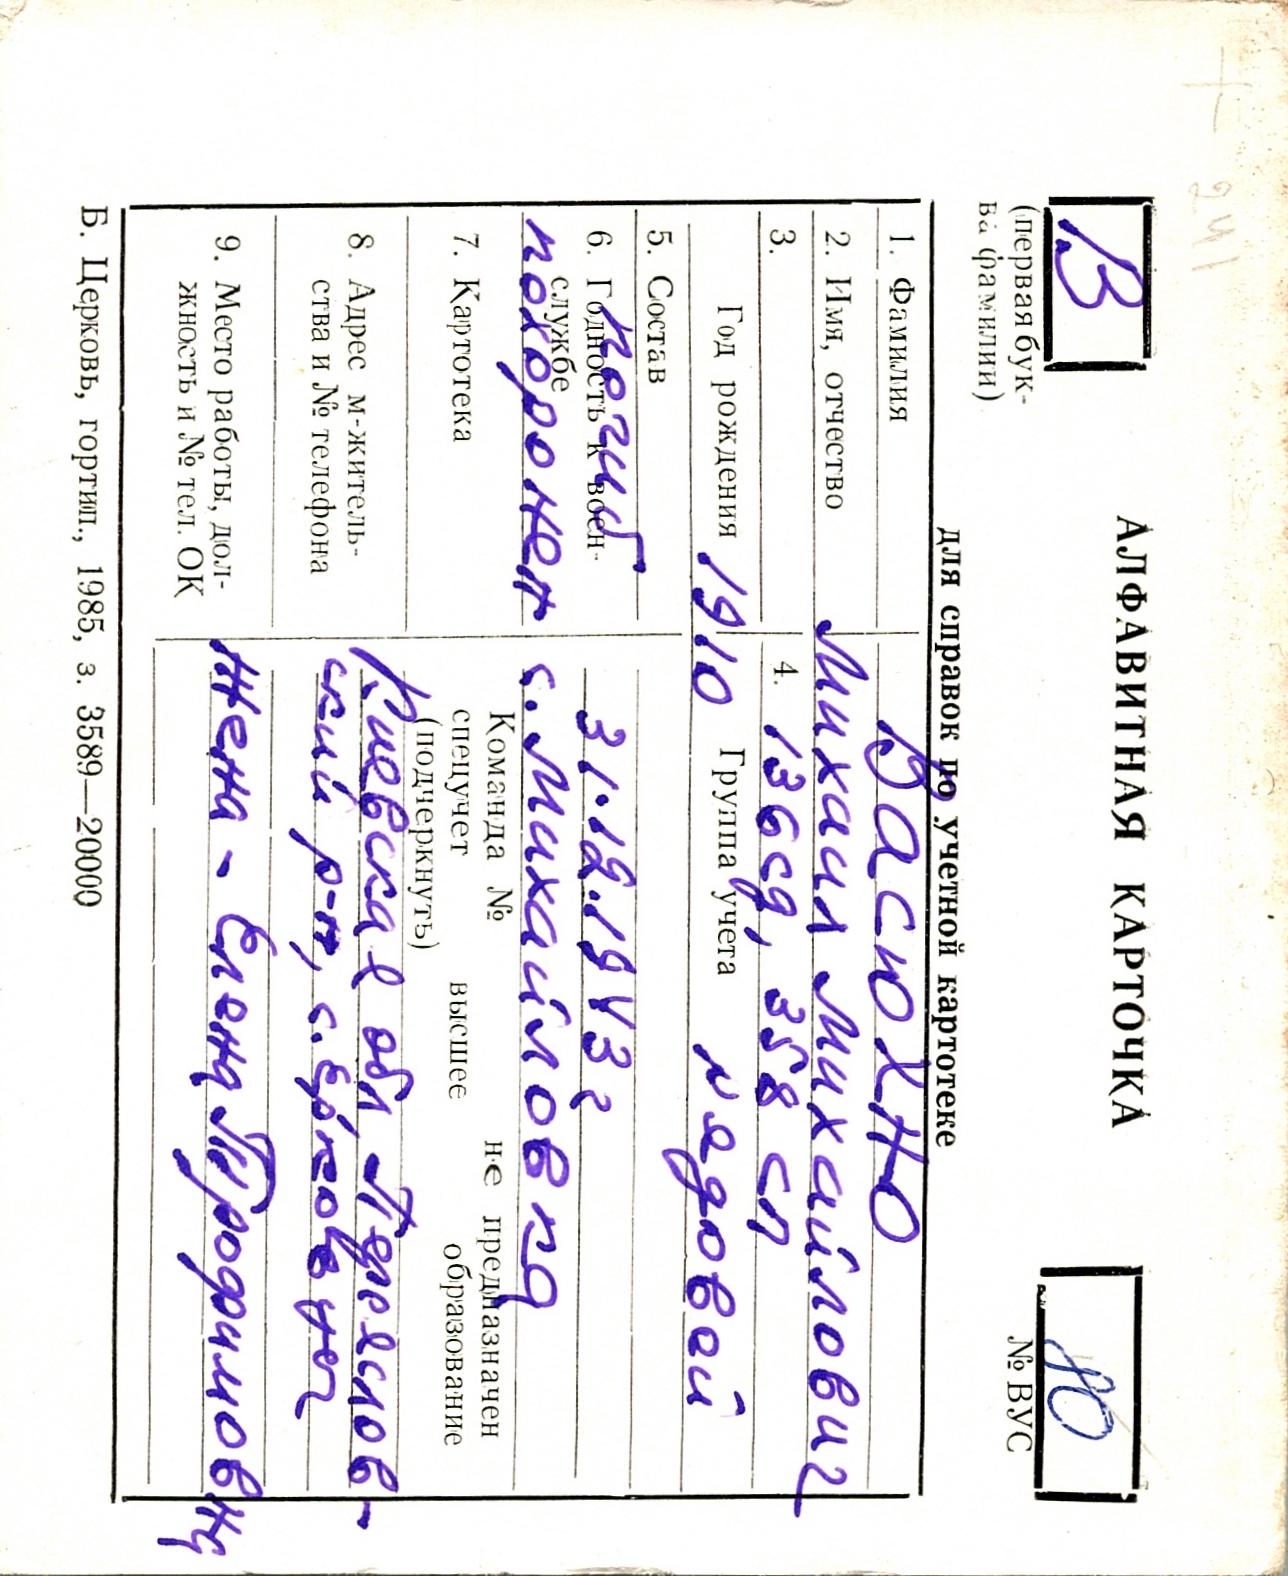 241
В
АЛФАВИТНАЯ КАРТОЧКА
(первая бук-
ва фамилии)
№ ВУС
для справок по учетной картотеке
1. Фамилия Васюхно
2. Имя, отчество Михаил Михайлович
3. 4. 136 сд, 358 сп
Год рождения 1910 Группа учета рядовой
5. Состав
6. Годность к воен-
службе
погиб 31.12.1943 г
похоронен с. Михайловка
7. Картотека
Команда № не предназначен
спецучет высшее образование
(подчеркнуть)
8. Адрес м-житель-
ства и № телефона
Киевская обл Переяслов-
ский р-н, с.
9. Место работы, дол-
жность и № тел. ОК
Жена - Елена Трофимовна
Б. Церковь, гортип., 1985, з. 3589—20000